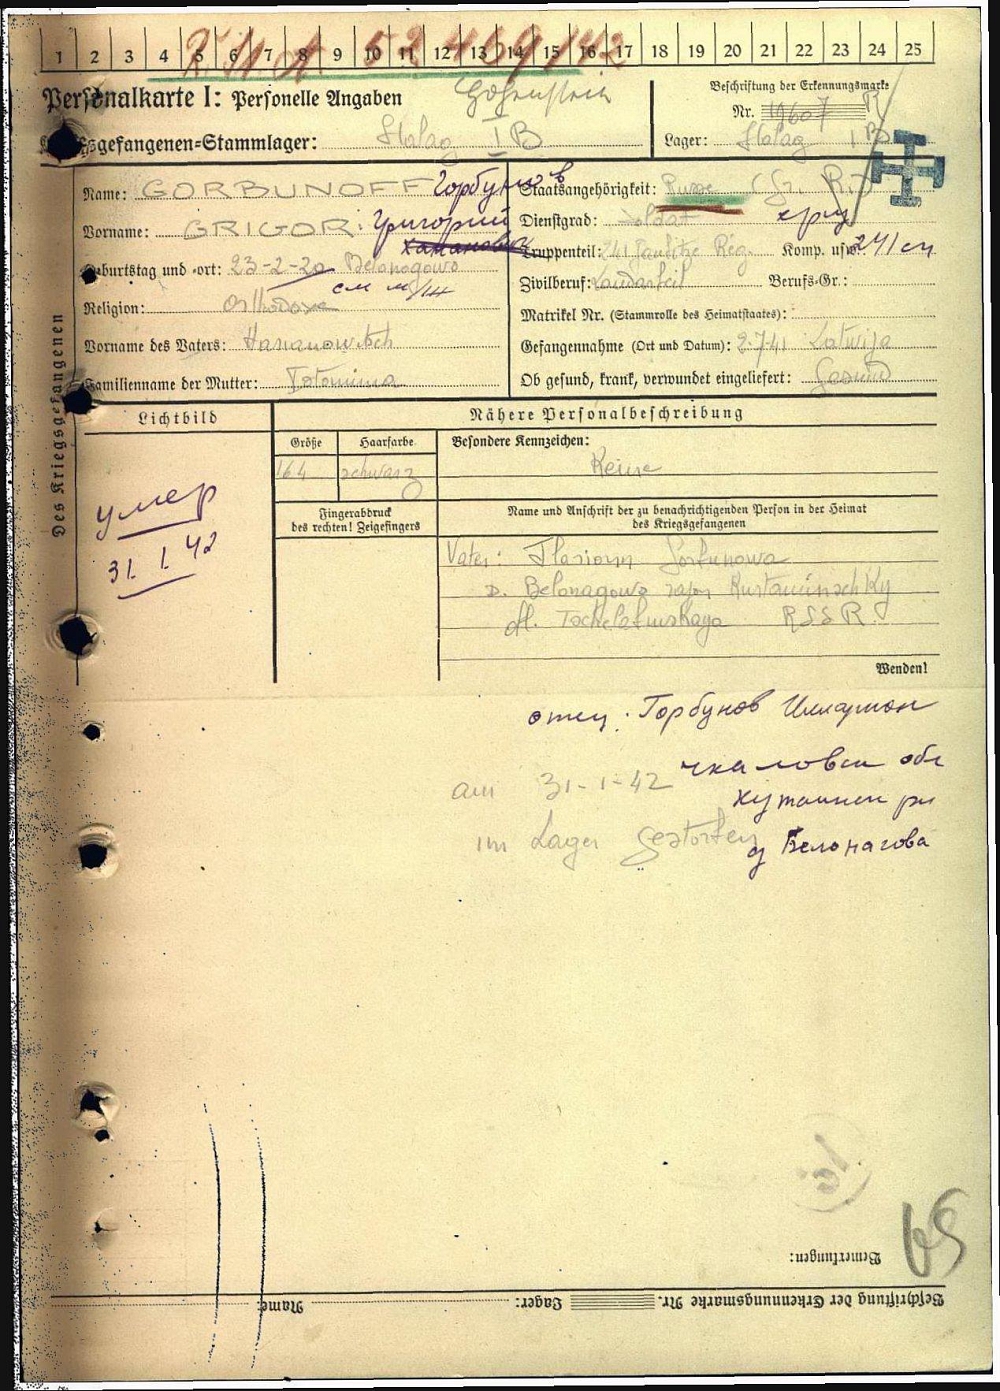 1 2 3 4 5 6 7 8 9 10 11 12 13 14 15 16 17 18 19 20 21 22 23 24 25
Personalkarte I: Personelle Angaben
Hohenstein
Beschriftung der Erkennungsmarke
Nr. 19607
gefangenen-Stammlager: Stalag I B
Lager: Stalag I B
Des Kriegsgefangenen
Name: GORBUNOFF Горбунов
Staatsangehörigkeit: Russe
Vorname: GRIGOR: Григорий
Dienstgrad: Soldat
Truppenteil: 241 Rég. Komp. usw.: 241
Geburtstag und -ort: 23-2-20 Belonogowo
Zivilberuf: Berufs-Gr.:
Religion: Orthodoxe
Matrikel Nr. (Stammrolle des Heimatstaates):
Vorname des Vaters: Harianowitch
Gefangennahme (Ort und Datum): 2.7.41 Latwija
Familienname der Mutter:
Ob gesund, krank, verwundet eingeliefert: Gesund
Lichtbild
Nähere Personalbeschreibung
Größe
Haarfarbe
Besondere Kennzeichen:
164
schwarz
Keine
Fingerabdruck
des rechten! Zeigefingers
Name und Anschrift der zu benachrichtigenden Person in der Heimat
des Kriegsgefangenen
умер
31. 1. 42
Vater: Ilarionn Gorbunowa
D. Belonagowo rajon
obl. RSSR.
Wenden!
отец: Горбунов Илларион
чкаловск обл
am 31-1-42
im Lager gestorben
д Белонагова
65
Bemerkungen:
Beschriftung der Erkennungsmarke Nr. Lager: Name: